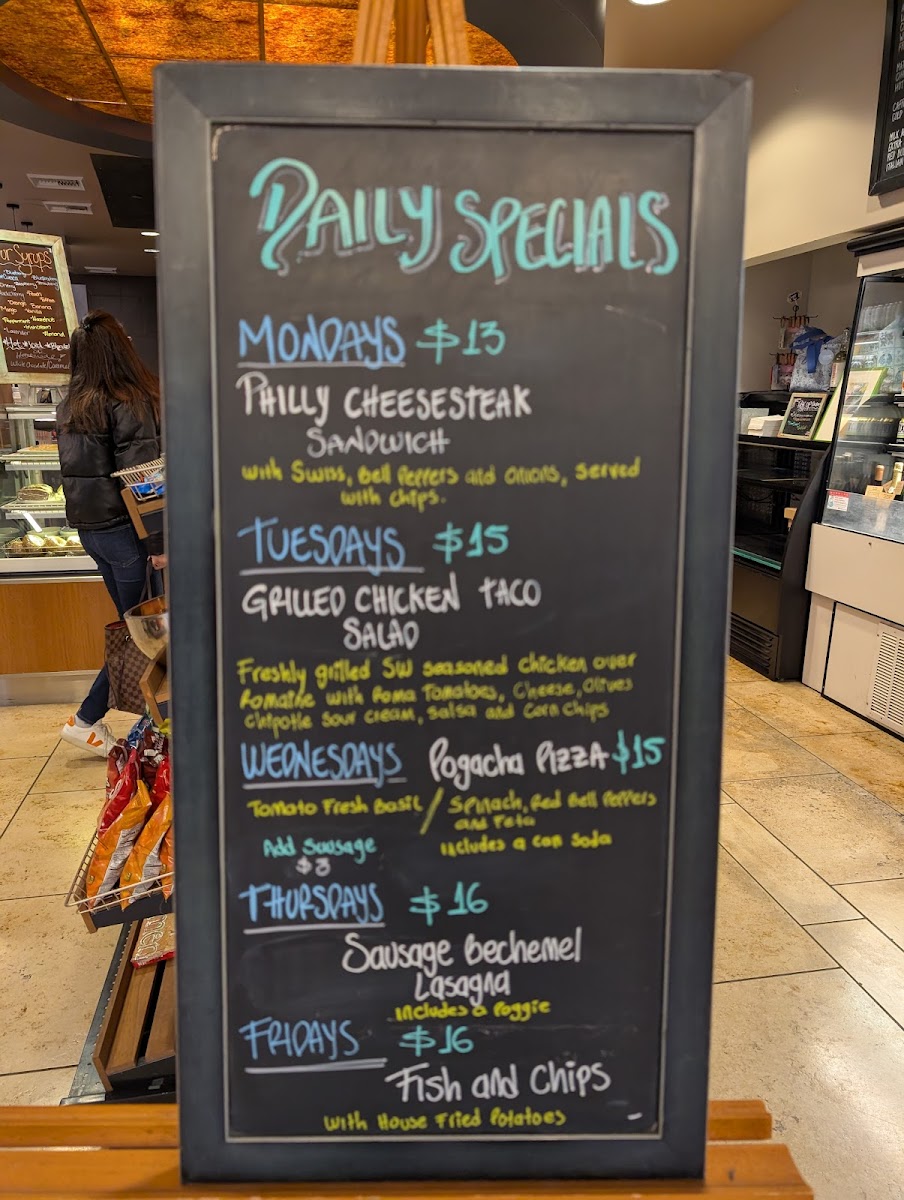 DAILY SPECIALS
MONDAYS $13
PHILLY CHEESESTEAK
SANDWICH
with Swiss, Bell Peppers and Onions, Served
with chips.
TUESDAYS $15
GRILLED CHICKEN TACO
SALAD
Freshly grilled SW seasoned chicken over
Romaine with Roma Tomatoes, Cheese, Olives
chipotle sour cream, salsa and corn chips
WEDNESDAYS Pogacha PIZZA $15
Tomato Fresh Basil / Spinach, Red Bell Peppers
and Feta
Add Sausage includes a can soda
$3
THURSDAYS $16
Sausage Bechemel
Lasagna
includes a Poggie
FRIDAYS $16
Fish and Chips
with House Fried Potatoes
Syrups
Vanilla
Almond